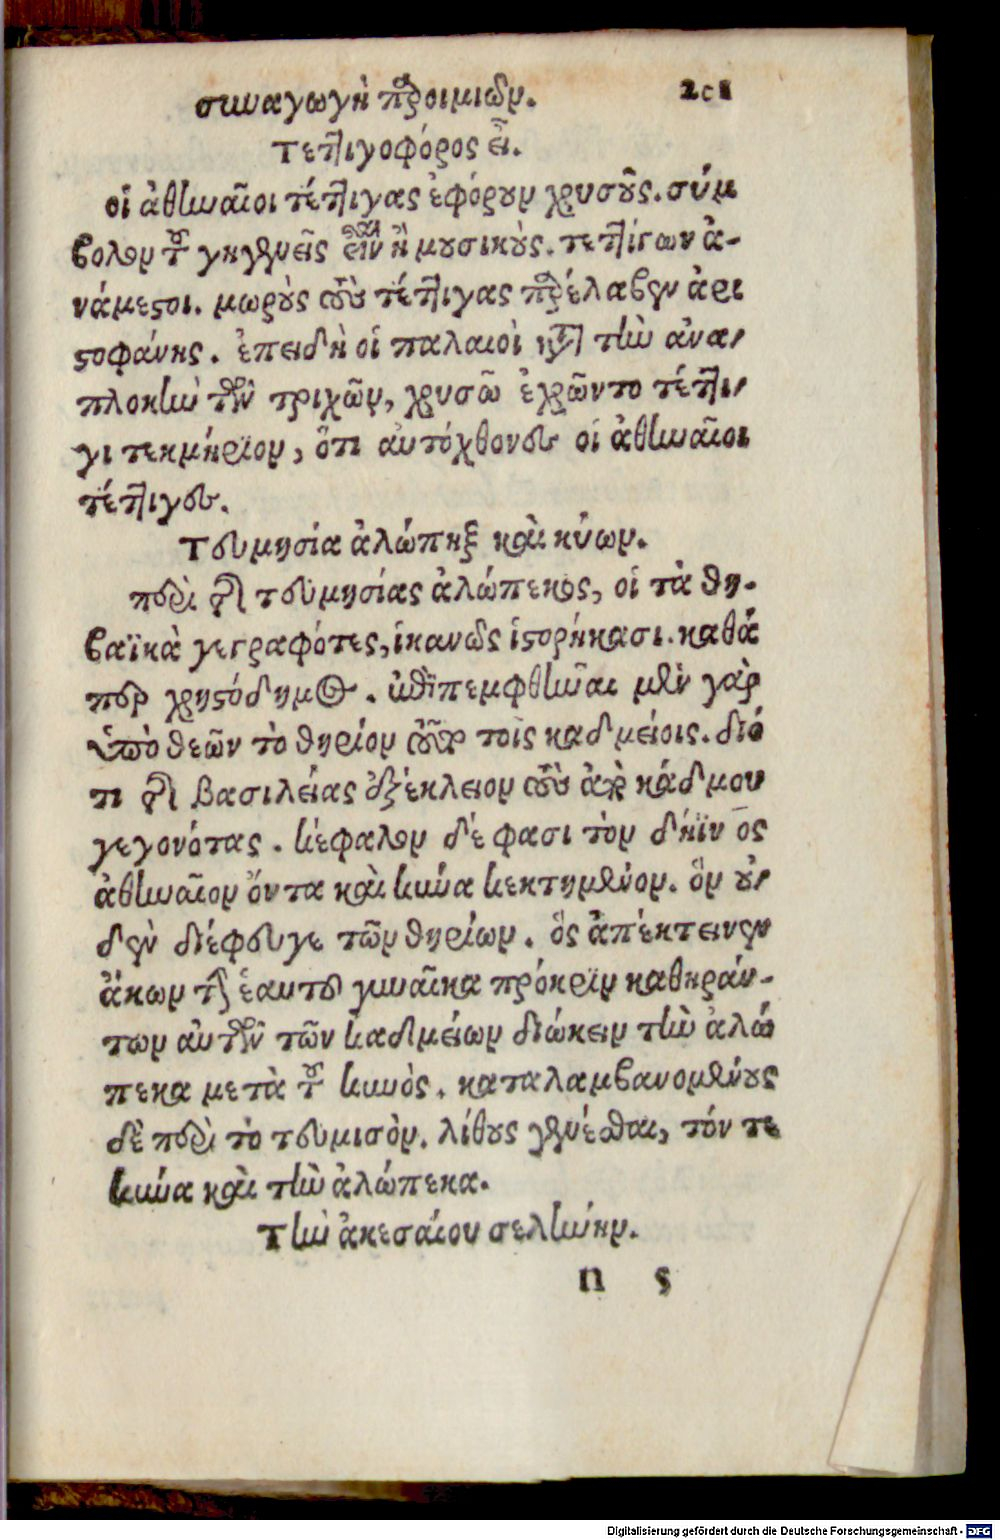 συναγωγὴ παροιμιῶν. 201
τεττιγοφόρος εἶ.
οἱ ἀθηναῖοι τέττιγας ἐφόρουν χρυσοῦς. σύμ
βολον τοῦ γηγενεῖς εἶναι ἢ μουσικοὺς. τεττίγων ἀ-
νάμεστοι. μωροὺς τοὺς τέττιγας παρέλαβεν ἀρι
στοφάνης. ἐπειδὴ οἱ παλαιοὶ κατὰ τὴν ἀνα/
πλοκὴν τῶν τριχῶν, χρυσῶ ἐχρῶντο τέττι/
γι τεκμήριον, ὅτι αὐτόχθονες οἱ ἀθηναῖοι
τέττιγες.
τευμησία ἀλώπηξ καὶ κύων.
περὶ τῆς τευμησίας ἀλώπεκος, οἱ τὰ θη-
βαϊκὰ γεγραφότες, ἱκανῶς ἱστορήκασι. καθά
περ χρηστόδημος. ἐπιπεμφθῆναι μὲν γὰρ
ὑπὸ θεῶν τὸ θηρίον τοῦτο τοῖς καδμείοις. διό
τι τῆς βασιλείας ἐξέκλειον τοὺς ἀπὸ κάδμου
γεγονότας. κέφαλον δέ φασι τὸν δήϊνος
ἀθηναῖον ὄντα καὶ κύνα κεκτημένον. ὃν οὐ/
δὲν διέφευγε τῶν θηρίων. ὃς ἀπέκτεινεν
ἄκων τὴν ἑαυτοῦ γυναῖκα πρόκριν καθηράν-
των αὐτὸν τῶν καδμείων διώκειν τὴν ἀλώ
πεκα μετὰ τοῦ κυνὸς. καταλαμβανομένους
δὲ περὶ τὸ τευμισὸν. λίθους γενέσθαι, τόν τε
κύνα καὶ τὴν ἀλώπεκα.
τὴν ἀκεσαίου σελήνην.
n ϛ
Digitalisierung gefördert durch die Deutsche Forschungsgemeinschaft - DFG